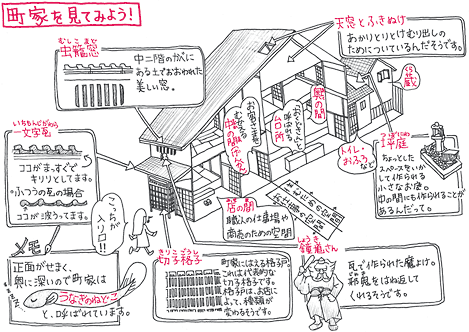 町家を見てみよう!
むしこまど
虫籠窓
中二階のかべに
ある土でおおわれた
美しい窓。
天窓とふきぬけ
あかりとりとけむり出しの
ためについているんだそうです。
いちもんじがわら
一文字瓦
ココがまっすぐで
キリリとしてます。
ふつうの瓦の場合
ココが波ってます。
こっちが
入り口!!
メモ
正面がせまく、
奥に深いので町家は
うなぎのねどこ
と、呼ばれています。
きりこごうし
切子格子
町家にはえる格子戸。
これは代表的な
切子格子です。
格子戸は、お店に
よって、種類が
変わるそうです。
店の間
職人の仕事場や
商売のための空間
中の間
奥の間
トイレ・
おふろ
など
つぼにわ
坪庭
ちょっとした
スペースをいか
して作られる
小さなお庭。
中の間にも作られることが
あるんだって。
しょうき
鐘馗さん
瓦で作られた魔よけ。
邪鬼をはね返して
くれるそうです。